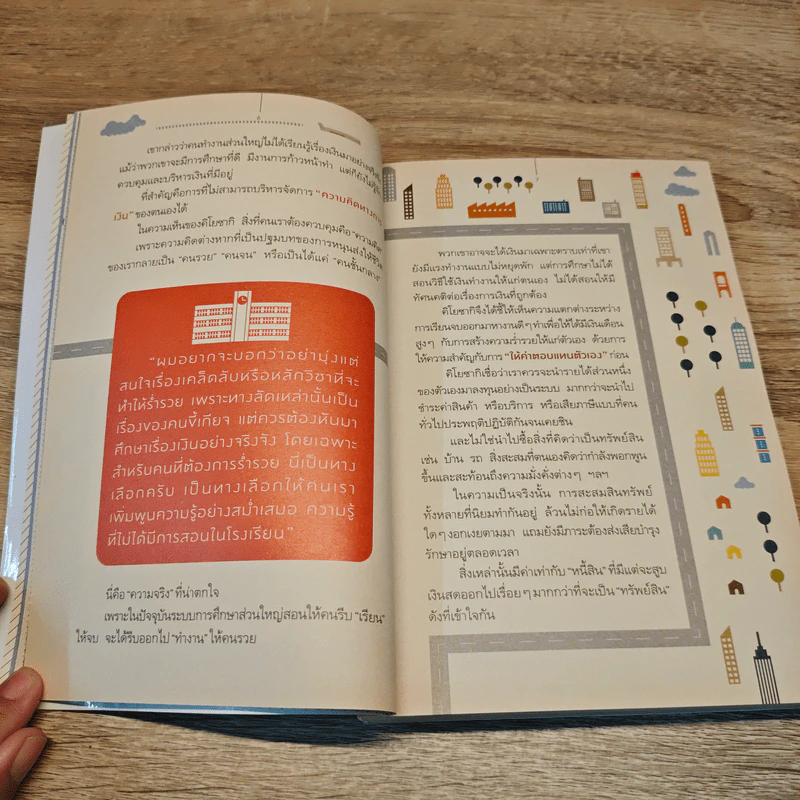 เขากล่าวว่าคนทำงานส่วนใหญ่ไม่ได้เรียนรู้เรื่องเงินมาอย่าง
แม้ว่าพวกเขาจะมีการศึกษาที่ดี มีงานการก้าวหน้าทำ แต่ก็ยังไม่
ควบคุมและบริหารเงินที่มีอยู่
ที่สำคัญคือการที่ไม่สามารถบริหารจัดการ "ความคิดทางการ
เงิน" ของตนเองได้
ในความเห็นของคิโยซากิ สิ่งที่คนเราต้องควบคุมคือ "ความคิด"
เพราะความคิดต่างหากที่เป็นปฐมบทของการหนุนส่งให้ชีวิต
ของเรากลายเป็น "คนรวย" "คนจน" หรือเป็นได้แค่ "คนชั้นกลาง"
"ผมอยากจะบอกว่าอย่ามุ่งแต่
สนใจเรื่องเคล็ดลับหรือหลักวิชาที่จะ
ทำให้ร่ำรวย เพราะทางลัดเหล่านั้นเป็น
เรื่องของคนขี้เกียจ แต่ควรต้องหันมา
ศึกษาเรื่องเงินอย่างจริงจัง โดยเฉพาะ
สำหรับคนที่ต้องการร่ำรวย นี่เป็นทาง
เลือกครับ เป็นทางเลือกให้คนเรา
เพิ่มพูนความรู้อย่างสม่ำเสมอ ความรู้
ที่ไม่ได้มีการสอนในโรงเรียน"
นี่คือ "ความจริง" ที่น่าตกใจ
เพราะในปัจจุบันระบบการศึกษาส่วนใหญ่สอนให้คนรีบ "เรียน"
ให้จบ จะได้รีบออกไป "ทำงาน" ให้คนรวย
พวกเขาอาจจะได้เงินมาเฉพาะตราบเท่าที่เขา
ยังมีแรงทำงานแบบไม่หยุดพัก แต่การศึกษาไม่ได้
สอนวิธีใช้เงินทำงานให้แก่ตนเอง ไม่ได้สอนให้มี
ทัศนคติต่อเรื่องการเงินที่ถูกต้อง
คิโยซากิจึงได้ชี้ให้เห็นความแตกต่างระหว่าง
การเรียนจบออกมาหางานดีๆ ทำเพื่อให้ได้มีเงินเดือน
สูงๆ กับการสร้างความร่ำรวยให้แก่ตัวเอง ด้วยการ
ให้ความสำคัญกับการ "ให้ค่าตอบแทนตัวเอง" ก่อน
คิโยซากิเชื่อว่าเราควรจะนำรายได้ส่วนหนึ่ง
ของตัวเองมาลงทุนอย่างเป็นระบบ มากกว่าจะนำไป
ชำระค่าสินค้า หรือบริการ หรือเสียภาษีแบบที่คน
ทั่วไปประพฤติปฏิบัติกันจนเคยชิน
และไม่ใช่นำไปซื้อสิ่งที่คิดว่าเป็นทรัพย์สิน
เช่น บ้าน รถ สิ่งสะสมที่ตนเองคิดว่ากำลังพอกพูน
ขึ้นและสะท้อนถึงความมั่งคั่งต่างๆ ฯลฯ
ในความเป็นจริงนั้น การสะสมสินทรัพย์
ทั้งหลายที่นิยมทำกันอยู่ ล้วนไม่ก่อให้เกิดรายได้
ใดๆ งอกเงยตามมา แถมยังมีภาระต้องส่งเสียบำรุง
รักษาอยู่ตลอดเวลา
สิ่งเหล่านั้นมีค่าเท่ากับ "หนี้สิน" ที่มีแต่จะสูบ
เงินสดออกไปเรื่อยๆ มากกว่าที่จะเป็น "ทรัพย์สิน"
ดังที่เข้าใจกัน